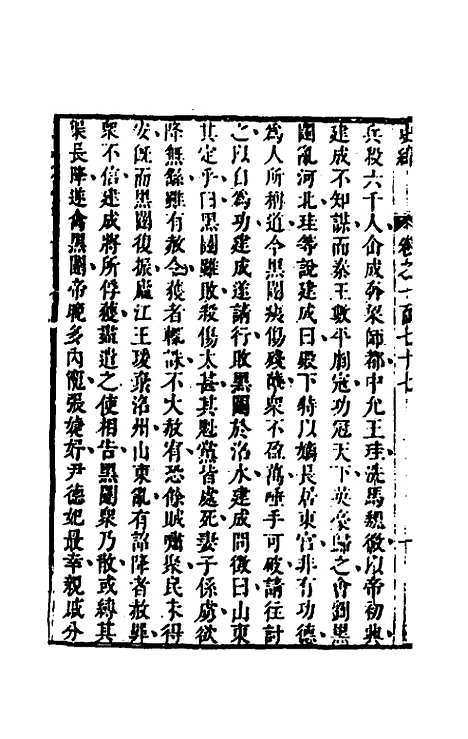 史緯 卷之一百七十七
兵殺六千人佥成奔梁師都中允王珪洗馬魏徵以帝初興
建成不知謀而秦王數平劇冠功冠天下英豪歸之會劉黑
闥亂河北珪等說建成曰殿下特以嫡長居東官非有功德
為人所稱道今黑闥痍傷殘孽衆不盈萬唾手可破請往討
之以自為功建成遂請行敗黑闥於洺水建成問徵曰山東
其定乎曰黑闥雖敗殺傷太甚其魁黨皆處死妻子係虜欲
降無繇雖有赦令獲者輒誅不大赦宥恐餘賊嘯聚民未得
安旣而黑闥復振廬江王瑗棄洺州山東亂有詔降者赦罪
衆不信建成將所俘獲盡遣之使相告黑闥衆乃散或縛其
渠長降遂禽黑闥帝晚多內寵張婕妤尹德妃最幸親戚分